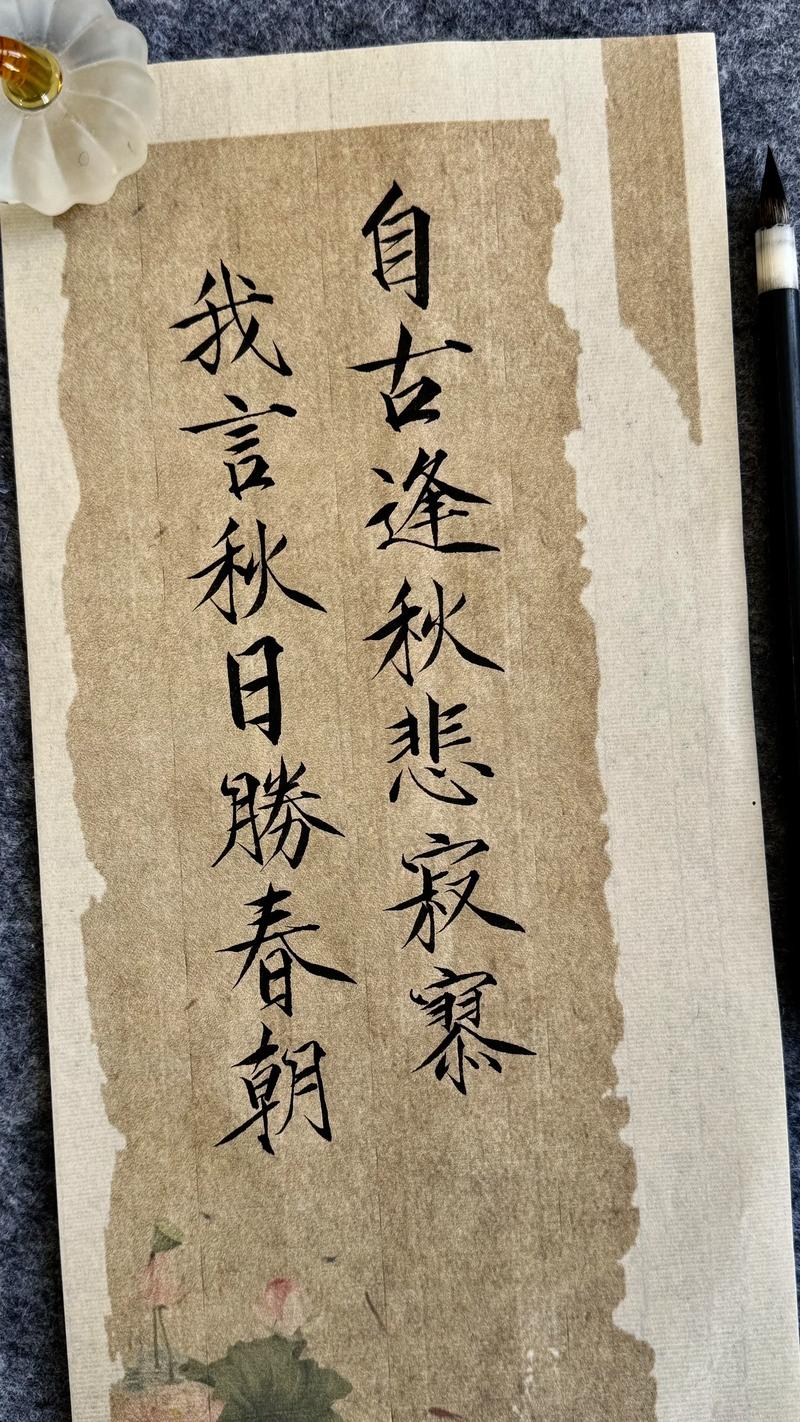 自古逢秋悲寂寥
我言秋日勝春朝